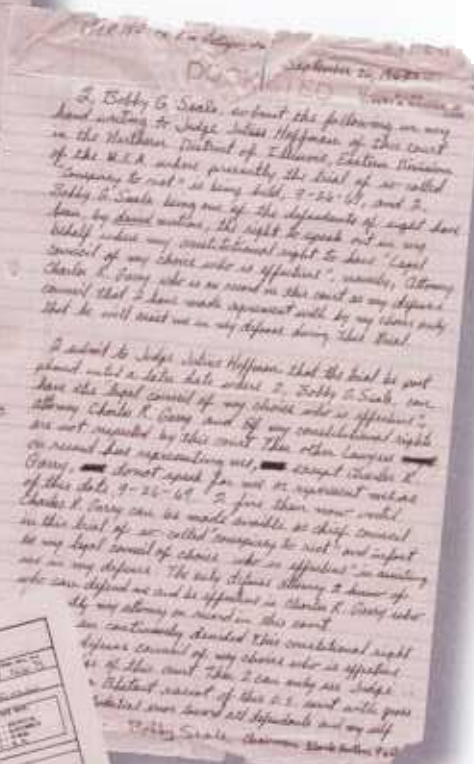 DOCKETED
September 26, 1969
I, Bobby G. Seale, submit the following in my
hand writing to Judge Julius Hoffman of this court
in the Northern District of Illinois, Eastern Division
of the U.S.A. where presently the trial of so-called
"Conspiracy to riot" is being held, 9-26-69, and I,
Bobby G. Seale being one of the defendants of right have
been, by denied motion, the right to speak out in my
behalf where my constitutional right to have "Legal
council of my choice who is effective", namely, Attorney
Charles R. Garry who is on record in this court as my defense
council that I have made agreement with by my choice only
that he will assist me in my defense during this trial.
I submit to Judge Julius Hoffman that the trial be post
phoned until a later date where I, Bobby G. Seale, can
have the "legal council of my choice who is effective",
attorney Charles R. Garry and if my constitutional rights
are not respected by this court then other lawyers
on record here representing me, except Charles R.
Garry, do not speak for me or represent me as
of this date 9-26-69. I fire them now until
Charles R. Garry can be made available as chief council
in this trial of so-called "conspiracy to riot" and infact
be my legal council of choice who is effective in assisting
me in my defense. The only defense attorney I know of
who can defend me and be effective is Charles R. Garry who
my attorney on record in this court.
continuously denied this constitutional right
defense council of my choice who is effective
of this court then I can only see Judge
Blatant racist of this U.S. court with gross
error toward all defendants and my self
Bobby Seale Chairman, Black Panther